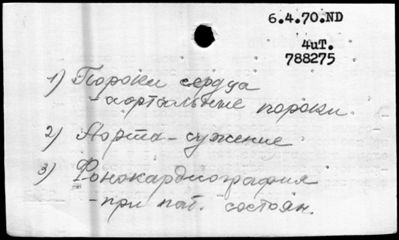 6.4.70.ND
4чт.
788275
1) Пороки сердца
- аортальные пороки.
2) Аорта - сужение
3) Фонокардиография
- при пат. состоян.